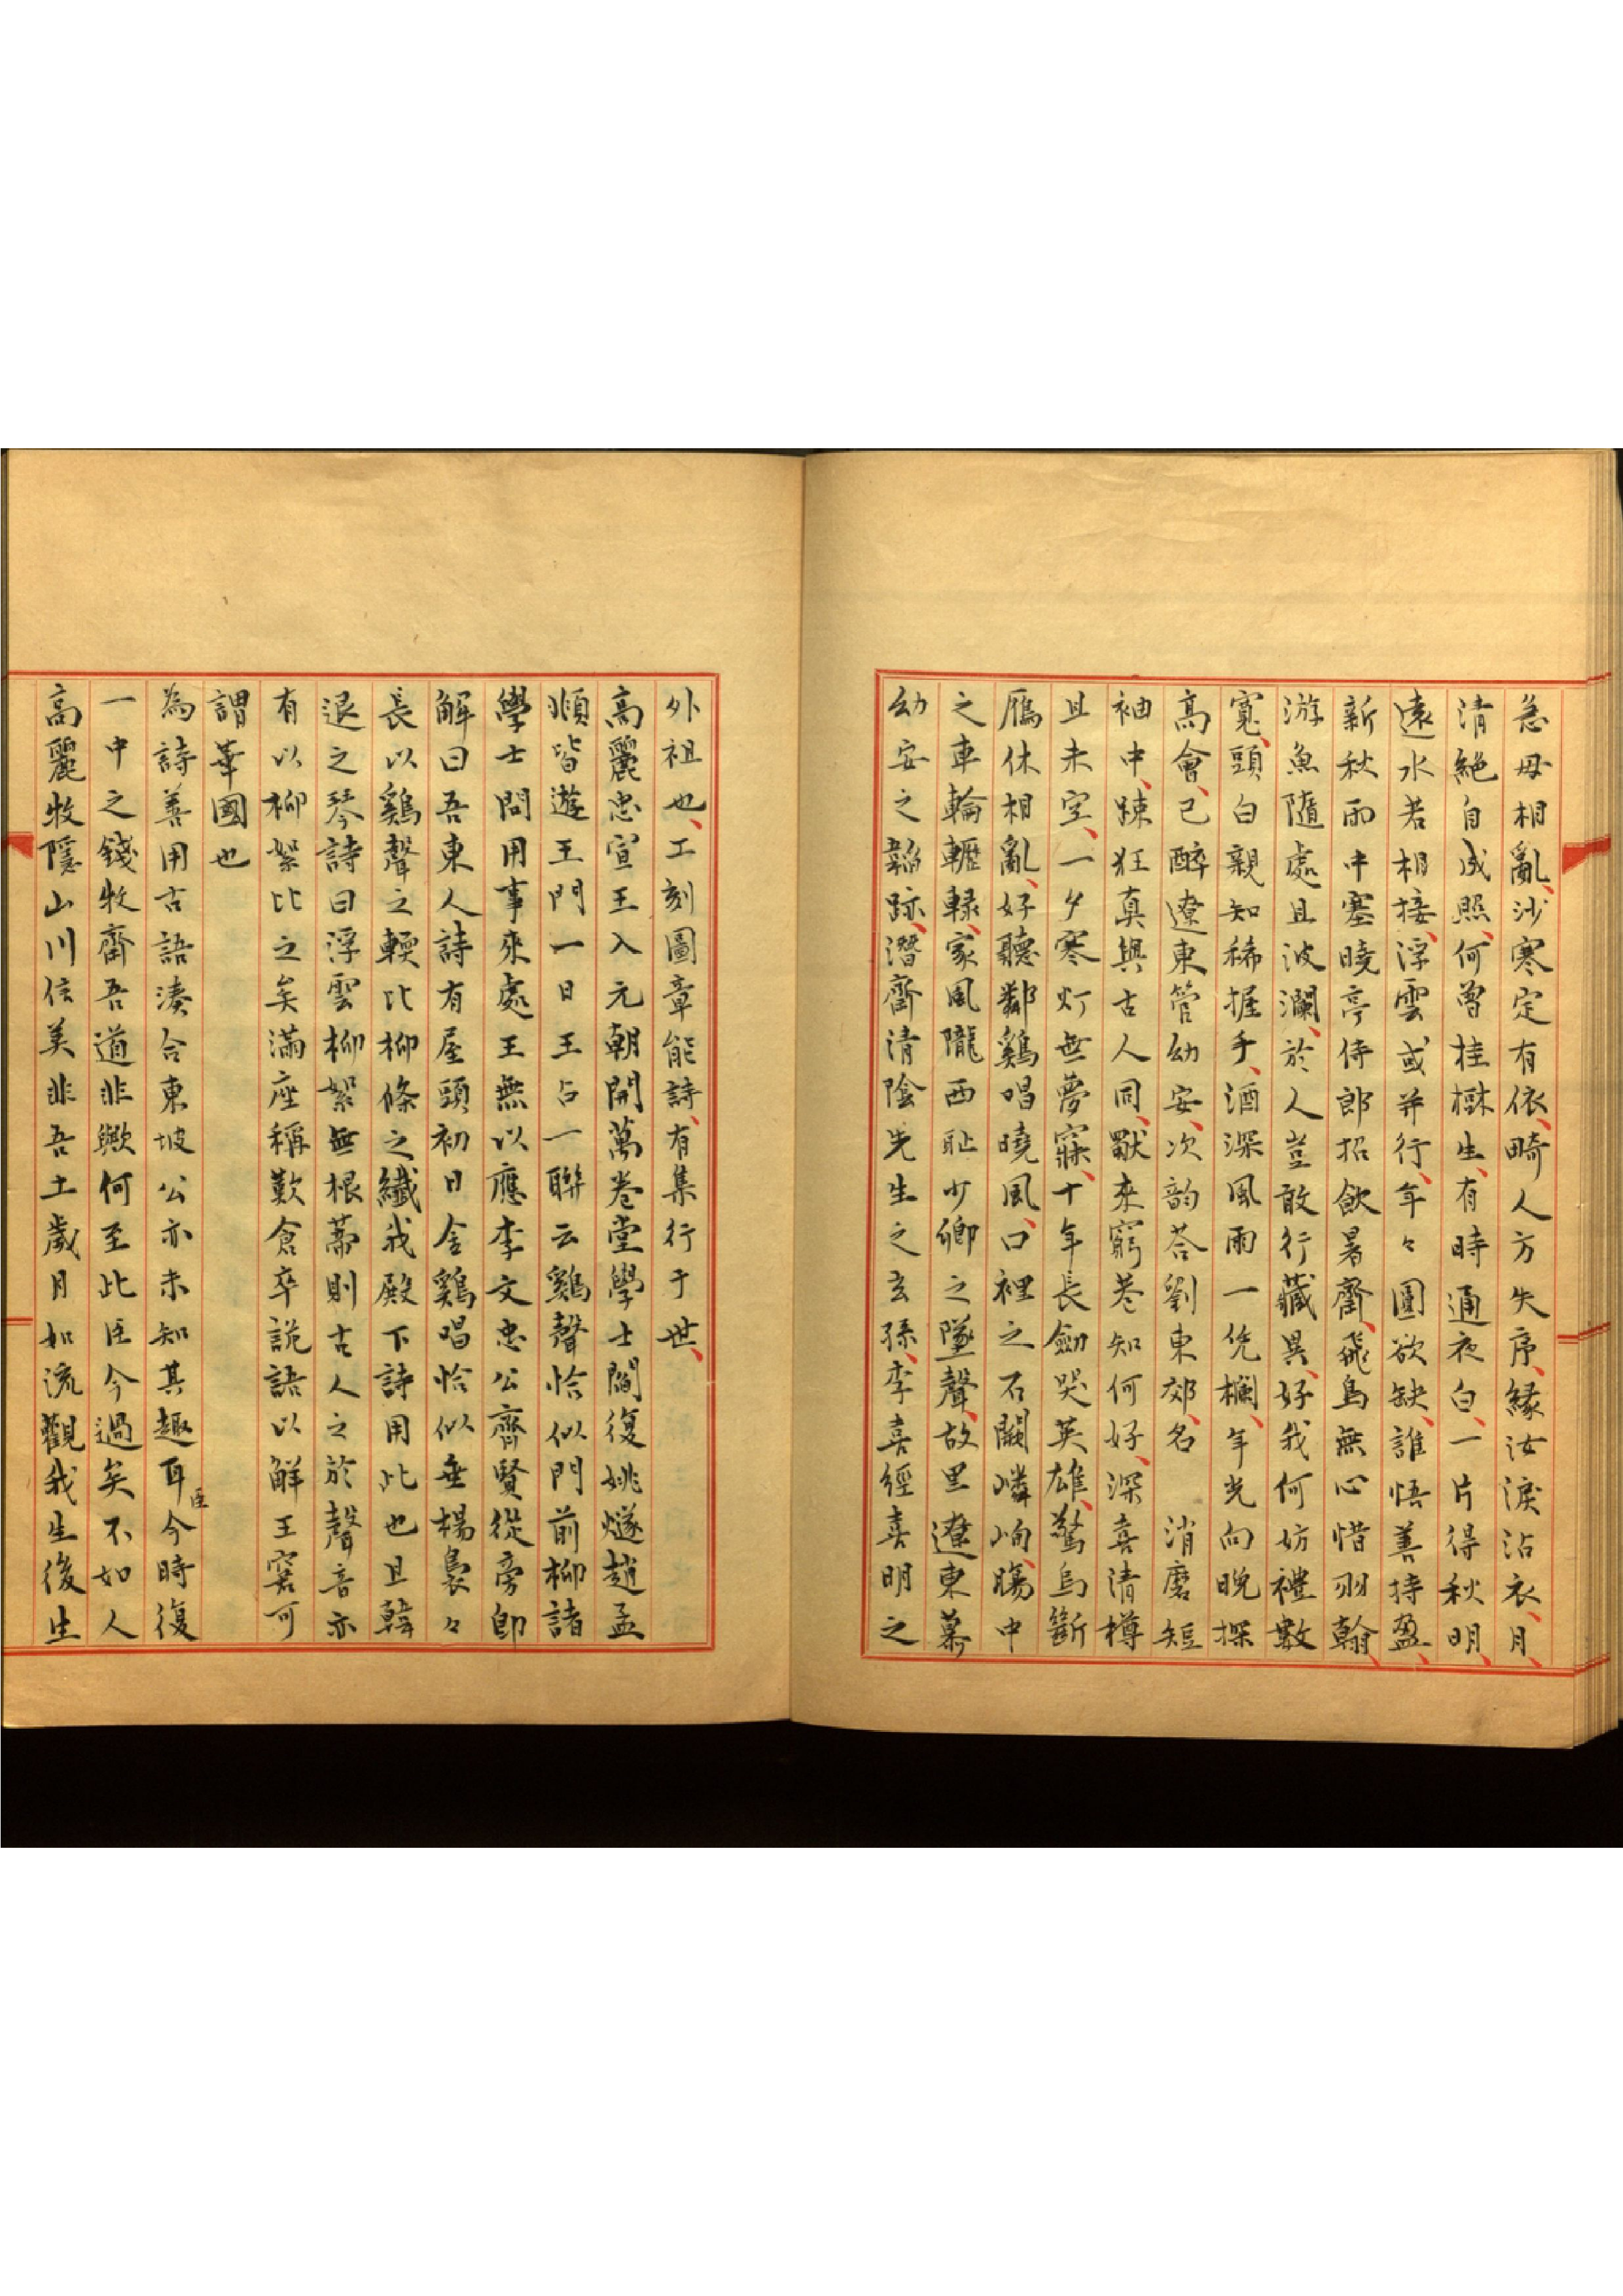 急毋相亂沙寒定有依畸人方失序緣汝淚沾衣月
清絕自成照何曾桂樹生有時通夜白一片得秋明
遠水若相接浮雲或并行年々圓欲缺誰悟善持盈
新秋雨中塞曉亭侍郎招飲暑齋飛鳥無心惜羽翰
游魚隨處且波瀾於人豈敢行藏異好我何妨禮數
寬頭白親知稀握手酒深風雨一凭欄年光向晚探
高會已醉遼東管幼安次韵荅劉東郊名 消磨短
袖中踈狂真與古人同歇來窮巷知何好深喜清樽
且未空一夕寒灯無夢寐十年長劒哭英雄驚烏斷
鴈休相亂好聽鄰鷄唱曉風口裡之石闕嶙峋腸中
之車輪轣轆家風隴西耻少卿之墜聲故里遼東慕
幼安之韜跡潛齋清陰先生之玄孫李喜經喜明之
外祖也工刻圖章能詩有集行于世
高麗忠宣王入元朝開萬卷堂學士閻復姚燧趙孟
順皆遊王門一日王占一聯云鷄聲恰似門前柳諸
學士問用事來處王無以應李文忠公齊賢從旁卽
解曰吾東人詩有屋頭初日金鷄唱恰似垂楊裊々
長以鷄聲之輭比柳條之纖我殿下詩用此也且韓
退之琴詩曰浮雲柳絮無根蔕則古人之於聲音亦
有以柳絮比之矣滿座稱歎倉卒詭語以解王窘可
謂華國也
為詩善用古語湊合東坡公亦未知其趣耳臣今時復
一中之錢牧齋吾道非歟何至此臣今過矣不如人
高麗牧隱山川信美非吾土歲月如流觀我生後生